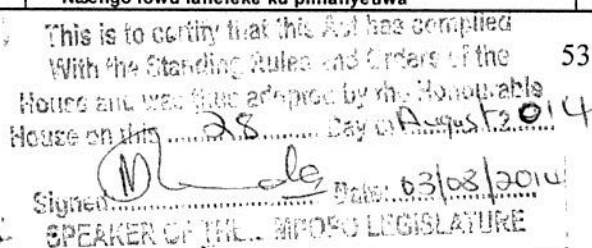 lowu
This is to certify that this Act has complied
With the Standing Rules and Orders of the
53
House and was thus adopted by the Honourable
House on this ........ 28 ........ Day of August 2014
Signed.................... Date: 03/08/2014
SPEAKER OF THE... MPOPO LEGISLATURE